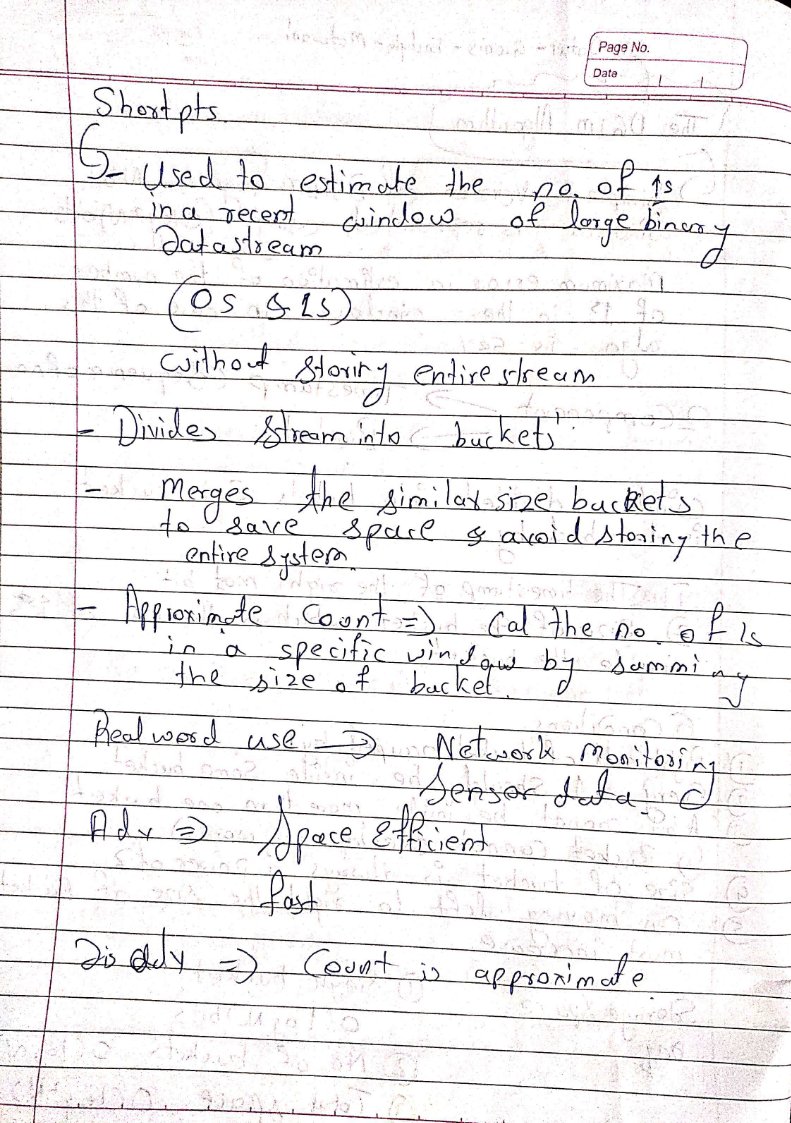 Page No.
Date
Short pts.
- Used to estimate the no. of 1s
in a recent window of large binary
datastream
(0s & 1s)
without storing entire stream
- Divides stream into buckets
- Merges the similar size buckets
to save space & avoid storing the
entire system.
- Approximate Count => Cal the no. of 1s
in a specific window by summing
the size of bucket.
Real word use → Network Monitoring
Sensor data
Adv => Space Efficient
fast
Disadv => Count is approximate.